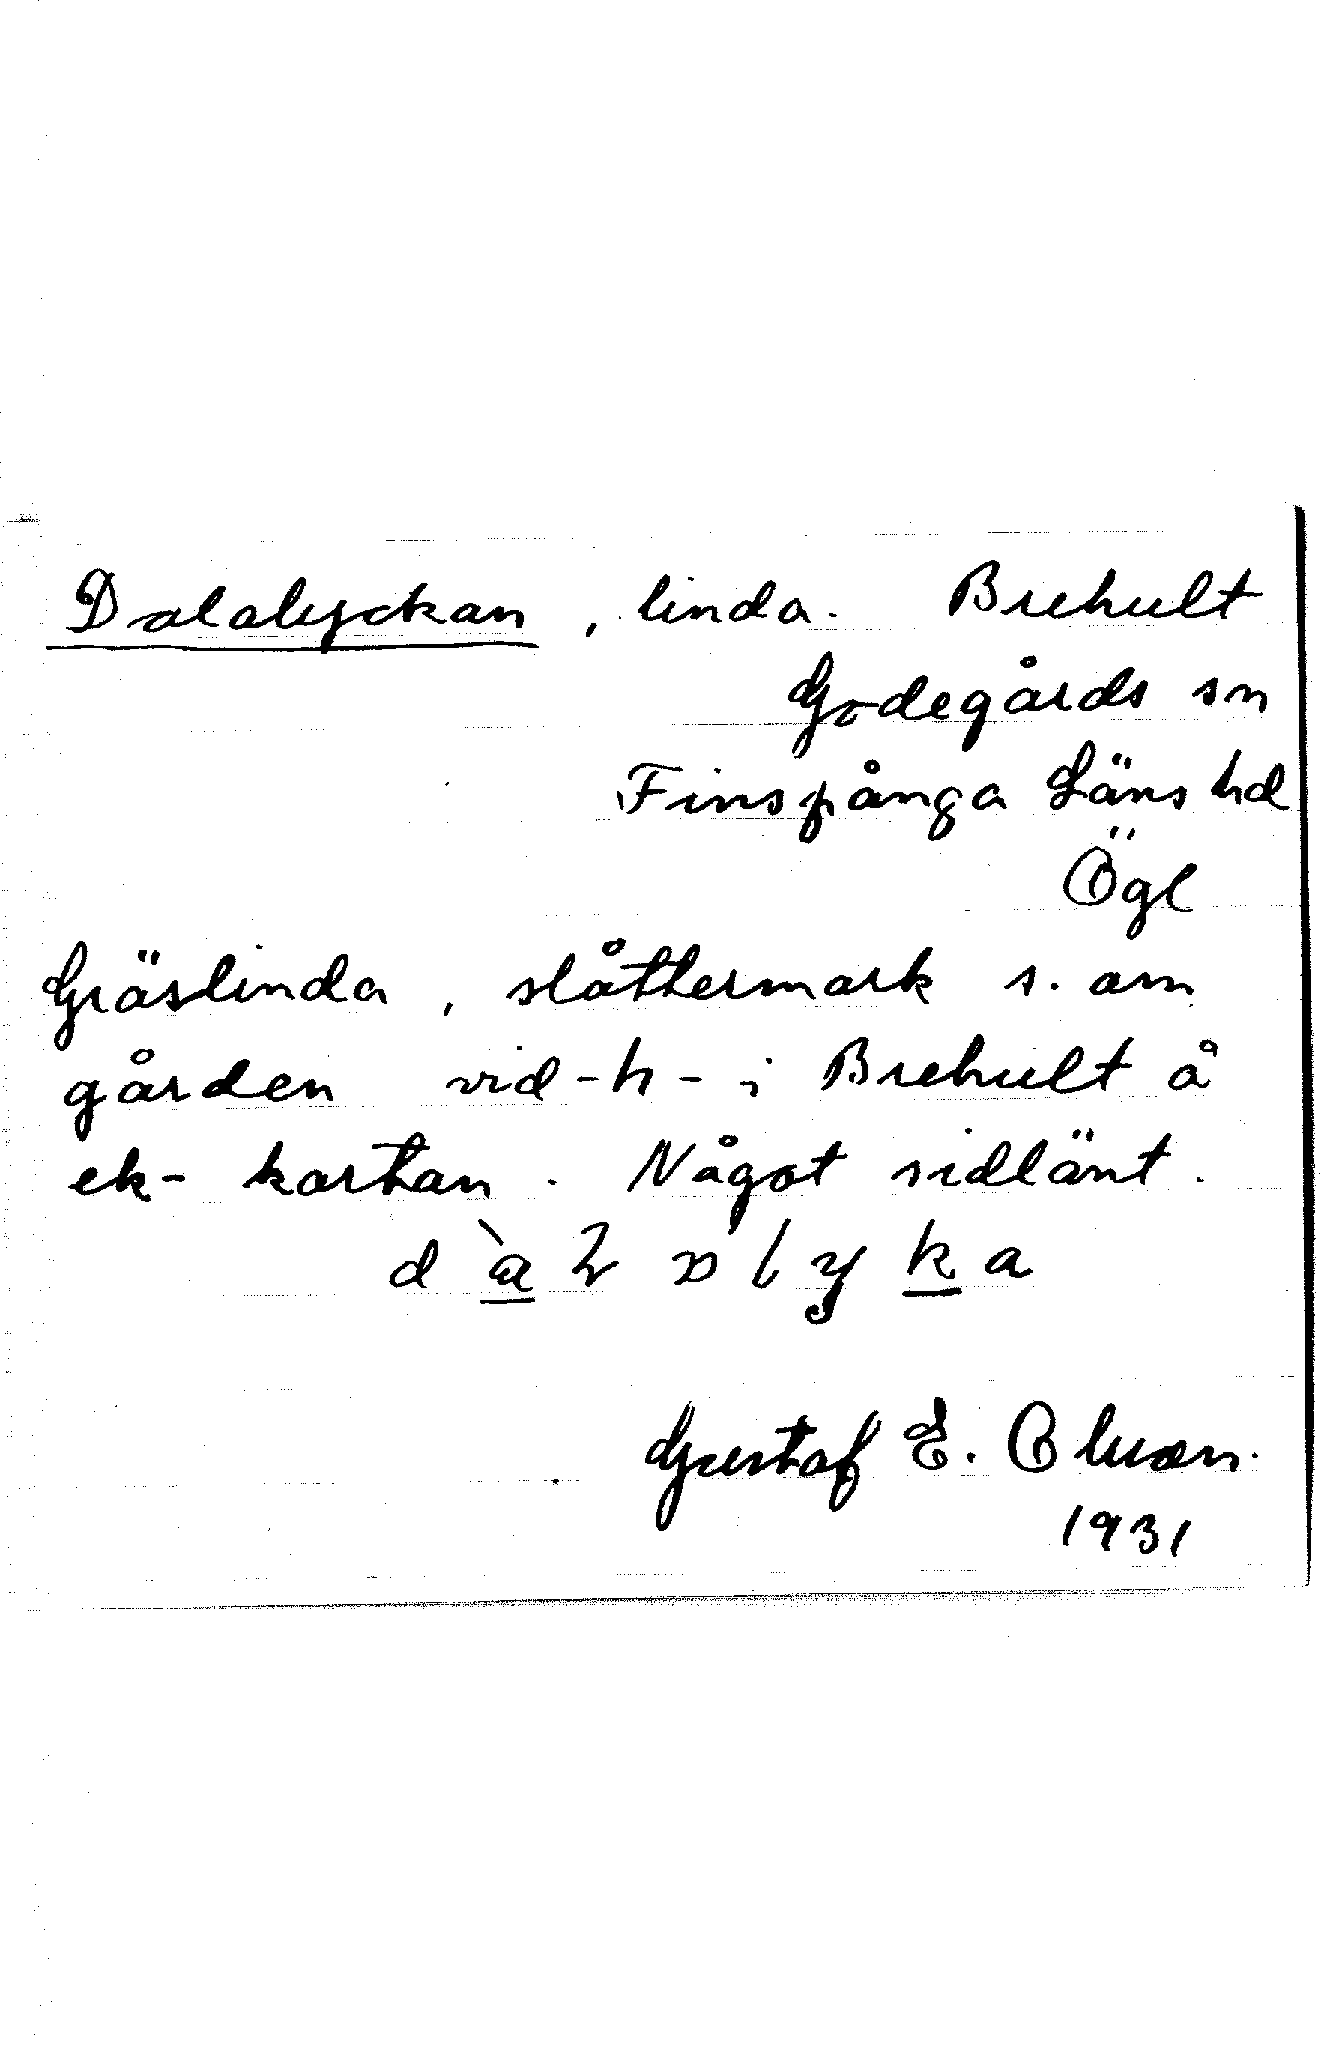 Dalalyckan, linda. Brehult
Godegårds sn
Finspånga Läns hd
Ögl
Gräslinda, slåttermark s. om
gården vid -h- i Brehult å
ek- kartan. Något sidlänt.
Gustaf E.
1931